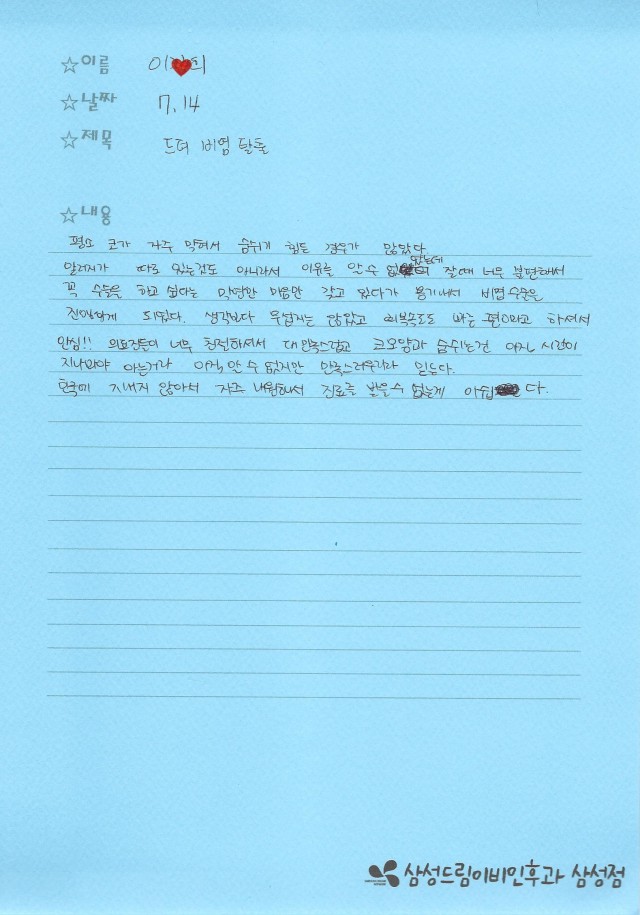 ☆이름 이❤의
☆날짜 7.14
☆제목 드뎌 비염 탈출
☆내용
평소 코가 자주 막혀서 숨쉬기 힘든 경우가 많았다.
알러지가 따로 있는것도 아니라서 이유를 알 수 없었는데 잘때 너무 불편해서
꼭 수술을 하고 싶다는 막연한 마음만 갖고 있다가 용기내서 비염수술을
진행하게 되었다. 생각보다 무섭지는 않았고 회복속도도 빠른 편이라고 하셔서
안심!! 의료진들이 너무 친절하셔서 대만족스럽고 코모양과 숨쉬는건 아직 시간이
지나봐야 아는거라 아직 알 수 없지만 만족스러우리라 믿는다.
한국에 지내지 않아서 자주 내원해서 진료를 받을 수 없는게 아쉽다.
삼성드림이비인후과 삼성점